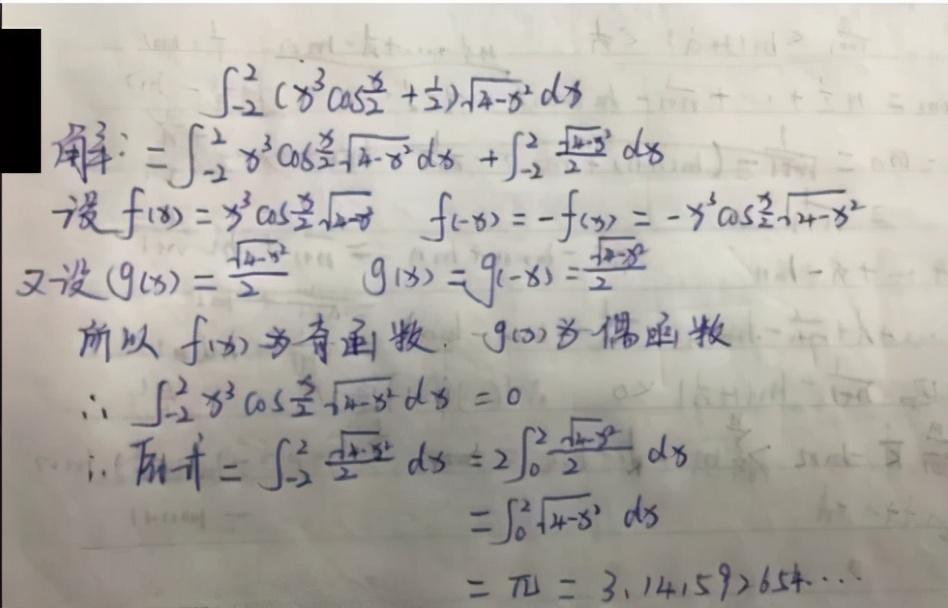 ∫₋₂² (x³cos x/2 + 1/2)√(4-x²) dx
解: = ∫₋₂² x³cos x/2 √(4-x²) dx + ∫₋₂² √(4-x²)/2 dx
设 f(x) = x³cos x/2 √(4-x) f(-x) = -f(x) = -x³cos x/2 √(4-x²)
又设 g(x) = √(4-x²)/2 g(x) = g(-x) = √(4-x²)/2
所以 f(x) 为奇函数. g(x) 为偶函数
∴ ∫₋₂² x³cos x/2 √(4-x²) dx = 0
∴ 原式 = ∫₋₂² √(4-x²)/2 dx = 2∫₀² √(4-x²)/2 dx
= ∫₀² √(4-x²) dx
= π = 3.141592654...